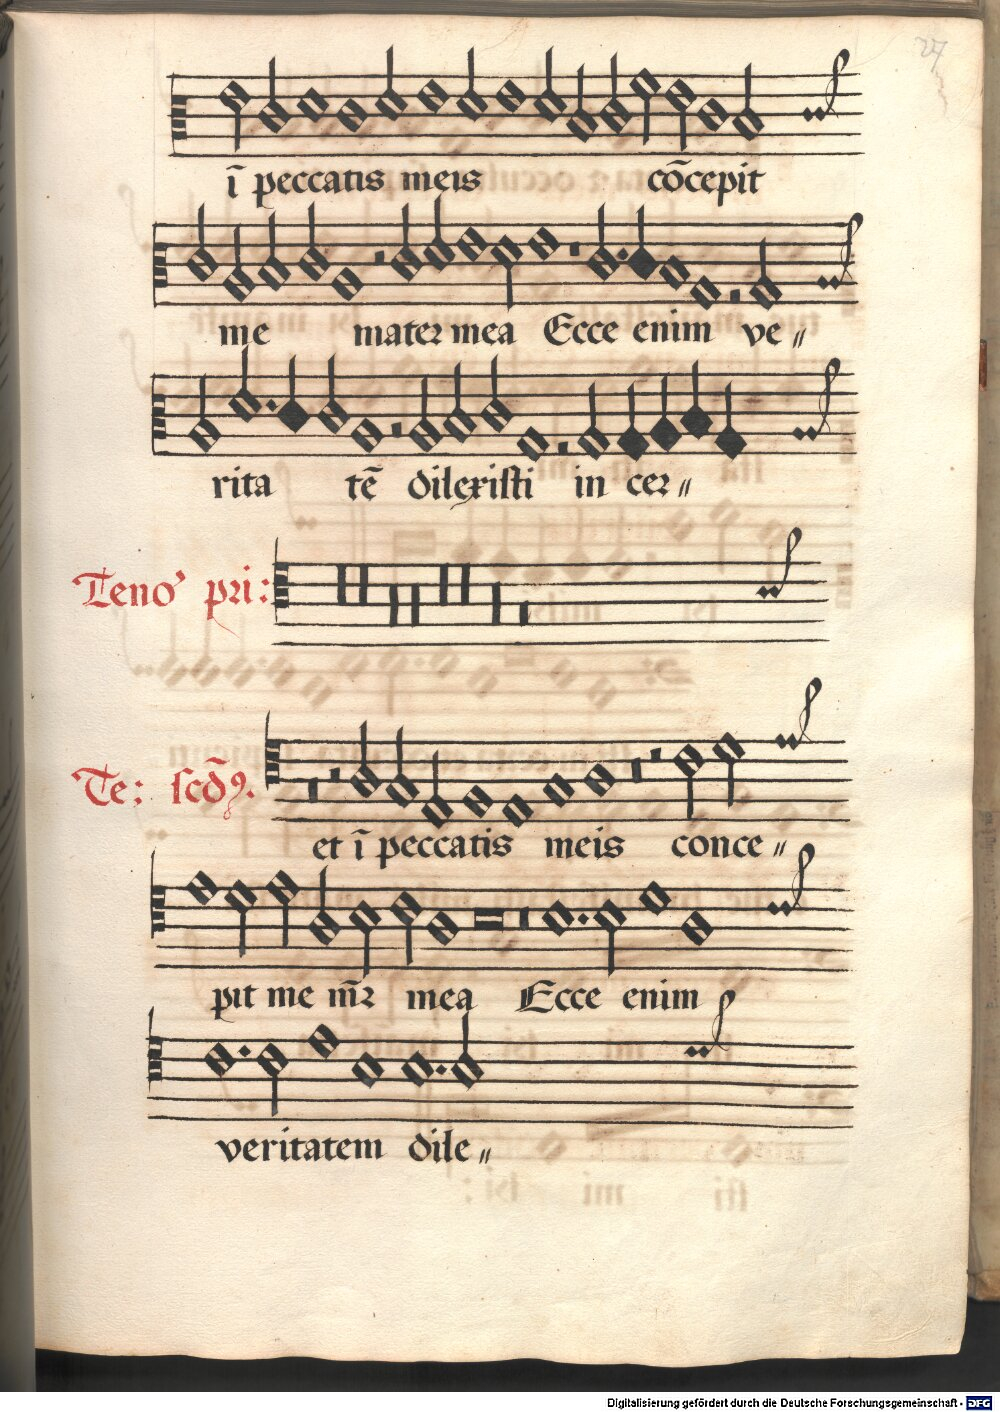 27
ī peccatis meis cōcepit
me mater mea Ecce enim ve〃
rita tē dilexisti in cer〃
Teno' pri:
Te: scd̄9.
et ī peccatis meis conce〃
pit me m̄r mea Ecce enim
veritatem dile〃
Digitalisierung gefördert durch die Deutsche Forschungsgemeinschaft - DFG